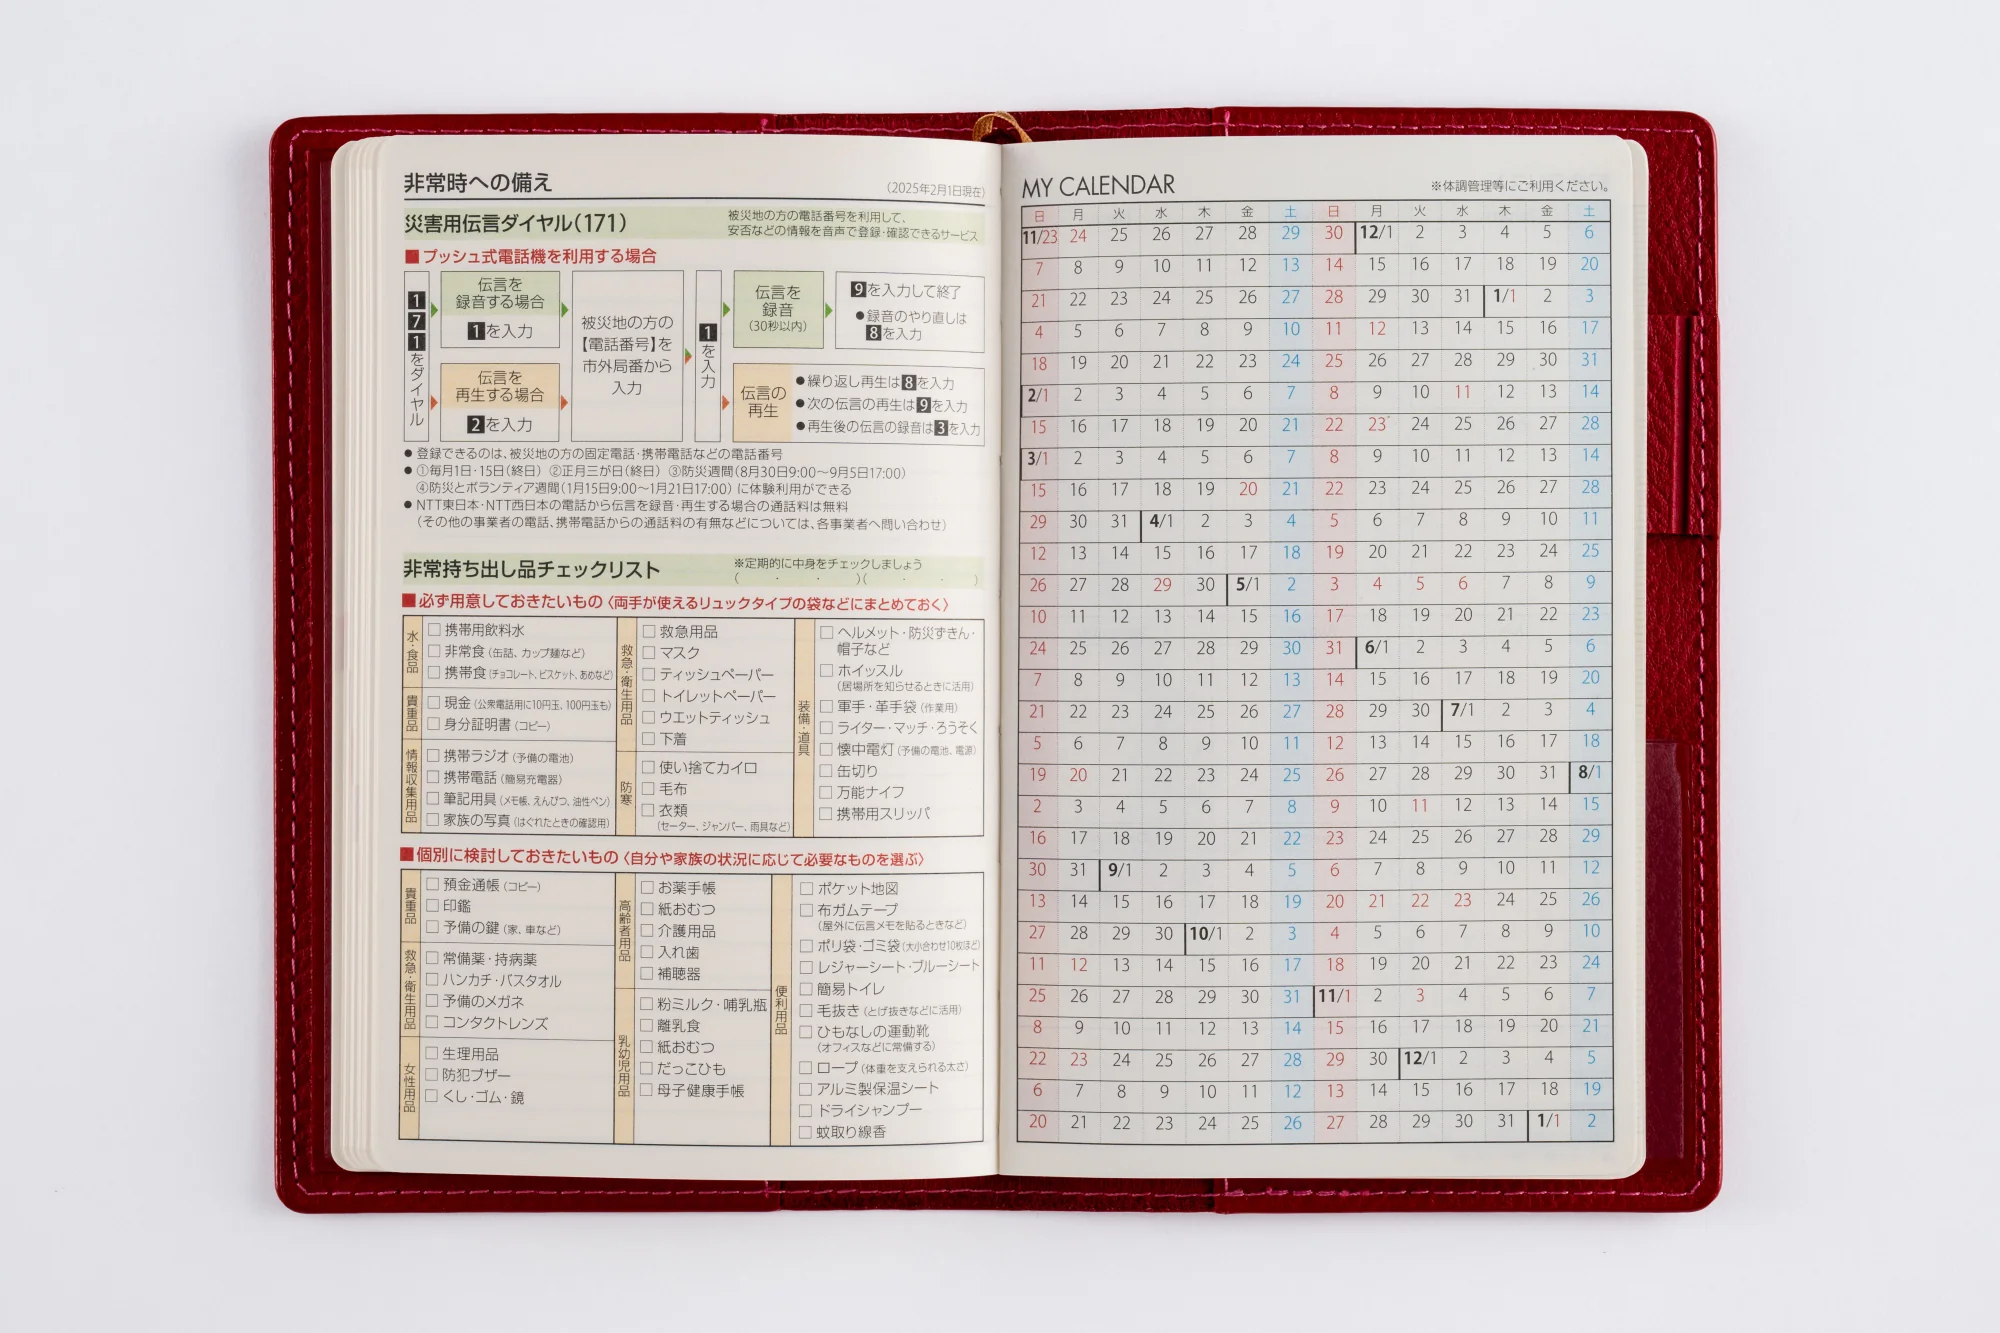 非常時への備え
（2025年2月1日現在）
災害用伝言ダイヤル（171）
被災地の方の電話番号を利用して、
安否などの情報を音声で登録・確認できるサービス
■プッシュ式電話機を利用する場合
171をダイヤル
伝言を
録音する場合
1を入力
伝言を
再生する場合
2を入力
被災地の方の
【電話番号】を
市外局番から
入力
1を入力
伝言を
録音
（30秒以内）
9を入力して終了
●録音のやり直しは
8を入力
伝言の
再生
●繰り返し再生は8を入力
●次の伝言の再生は9を入力
●再生後の伝言の録音は3を入力
●登録できるのは、被災地の方の固定電話・携帯電話などの電話番号
●①毎月1日・15日（終日） ②正月三が日（終日） ③防災週間（8月30日9:00～9月5日17:00）
④防災とボランティア週間（1月15日9:00～1月21日17:00） に体験利用ができる
●NTT東日本・NTT西日本の電話から伝言を録音・再生する場合の通話料は無料
（その他の事業者の電話、携帯電話からの通話料の有無などについては、各事業者へ問い合わせ）
非常持ち出し品チェックリスト
※定期的に中身をチェックしましょう
（ ・ ・ ）（ ・ ・ ）
■必ず用意しておきたいもの〈両手が使えるリュックタイプの袋などにまとめておく〉
水・食品
□携帯用飲料水
□非常食（缶詰、カップ麺など）
□携帯食（チョコレート、ビスケット、あめなど）
貴重品
□現金（公衆電話用に10円玉、100円玉も）
□身分証明書（コピー）
情報収集用品
□携帯ラジオ（予備の電池）
□携帯電話（簡易充電器）
□筆記用具（メモ帳、えんぴつ、油性ペン）
□家族の写真（はぐれたときの確認用）
救急・衛生用品
□救急用品
□マスク
□ティッシュペーパー
□トイレットペーパー
□ウエットティッシュ
□下着
防寒
□使い捨てカイロ
□毛布
□衣類
（セーター、ジャンパー、雨具など）
装備・道具
□ヘルメット・防災ずきん・
帽子など
□ホイッスル
（居場所を知らせるときに活用）
□軍手・革手袋（作業用）
□ライター・マッチ・ろうそく
□懐中電灯（予備の電池、電源）
□缶切り
□万能ナイフ
□携帯用スリッパ
■個別に検討しておきたいもの〈自分や家族の状況に応じて必要なものを選ぶ〉
貴重品
□預金通帳（コピー）
□印鑑
□予備の鍵（家、車など）
救急・衛生用品
□常備薬・持病薬
□ハンカチ・バスタオル
□予備のメガネ
□コンタクトレンズ
女性用品
□生理用品
□防犯ブザー
□くし・ゴム・鏡
高齢者用品
□お薬手帳
□紙おむつ
□介護用品
□入れ歯
□補聴器
乳幼児用品
□粉ミルク・哺乳瓶
□離乳食
□紙おむつ
□だっこひも
□母子健康手帳
便利用品
□ポケット地図
□布ガムテープ
（屋外に伝言メモを貼るときなど）
□ポリ袋・ゴミ袋（大小合わせ10枚ほど）
□レジャーシート・ブルーシート
□簡易トイレ
□毛抜き（とげ抜きなどに活用）
□ひもなしの運動靴
（オフィスなどに常備する）
□ロープ（体重を支えられる太さ）
□アルミ製保温シート
□ドライシャンプー
□蚊取り線香
MY CALENDAR
※体調管理等にご利用ください。
日 月 火 水 木 金 土 日 月 火 水 木 金 土
11/23 24 25 26 27 28 29 30 12/1 2 3 4 5 6
7 8 9 10 11 12 13 14 15 16 17 18 19 20
21 22 23 24 25 26 27 28 29 30 31 1/1 2 3
4 5 6 7 8 9 10 11 12 13 14 15 16 17
18 19 20 21 22 23 24 25 26 27 28 29 30 31
2/1 2 3 4 5 6 7 8 9 10 11 12 13 14
15 16 17 18 19 20 21 22 23 24 25 26 27 28
3/1 2 3 4 5 6 7 8 9 10 11 12 13 14
15 16 17 18 19 20 21 22 23 24 25 26 27 28
29 30 31 4/1 2 3 4 5 6 7 8 9 10 11
12 13 14 15 16 17 18 19 20 21 22 23 24 25
26 27 28 29 30 5/1 2 3 4 5 6 7 8 9
10 11 12 13 14 15 16 17 18 19 20 21 22 23
24 25 26 27 28 29 30 31 6/1 2 3 4 5 6
7 8 9 10 11 12 13 14 15 16 17 18 19 20
21 22 23 24 25 26 27 28 29 30 7/1 2 3 4
5 6 7 8 9 10 11 12 13 14 15 16 17 18
19 20 21 22 23 24 25 26 27 28 29 30 31 8/1
2 3 4 5 6 7 8 9 10 11 12 13 14 15
16 17 18 19 20 21 22 23 24 25 26 27 28 29
30 31 9/1 2 3 4 5 6 7 8 9 10 11 12
13 14 15 16 17 18 19 20 21 22 23 24 25 26
27 28 29 30 10/1 2 3 4 5 6 7 8 9 10
11 12 13 14 15 16 17 18 19 20 21 22 23 24
25 26 27 28 29 30 31 11/1 2 3 4 5 6 7
8 9 10 11 12 13 14 15 16 17 18 19 20 21
22 23 24 25 26 27 28 29 30 12/1 2 3 4 5
6 7 8 9 10 11 12 13 14 15 16 17 18 19
20 21 22 23 24 25 26 27 28 29 30 31 1/1 2